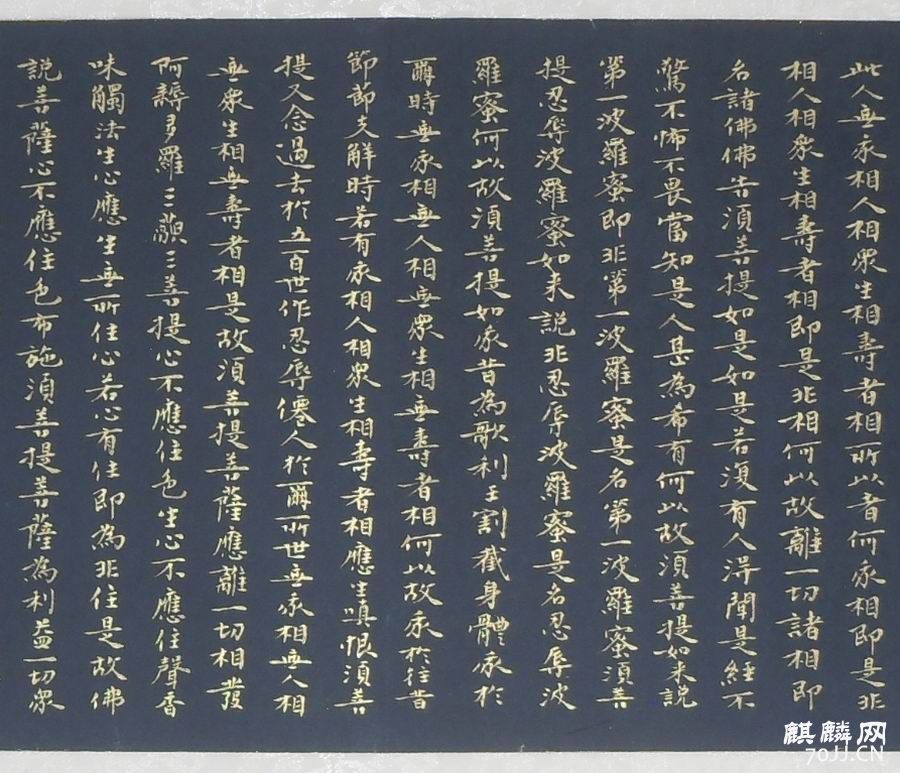 此人無我相人相眾生相壽者相所以者何我相即是非
相人相眾生相壽者相即是非相何以故離一切諸相即
名諸佛佛告須菩提如是如是若復有人得聞是經不
驚不怖不畏當知是人甚為希有何以故須菩提如来說
第一波羅蜜即非第一波羅蜜是名第一波羅蜜須菩
提忍辱波羅蜜如来說非忍辱波羅蜜是名忍辱波
羅蜜何以故須菩提如我昔為歌利王割截身體我於
爾時無我相無人相無眾生相無壽者相何以故我於往昔
節節支解時若有我相人相眾生相壽者相應生嗔恨須菩
提又念過去於五百世作忍辱僊人於爾所世無我相無人相
無眾生相無壽者相是故須菩提菩薩應離一切相發
阿耨多羅三藐三菩提心不應住色生心不應住聲香
味觸法生心應生無所住心若心有住即為非住是故佛
說菩薩心不應住色布施須菩提菩薩為利益一切眾
麒麟网
70JJ.CN